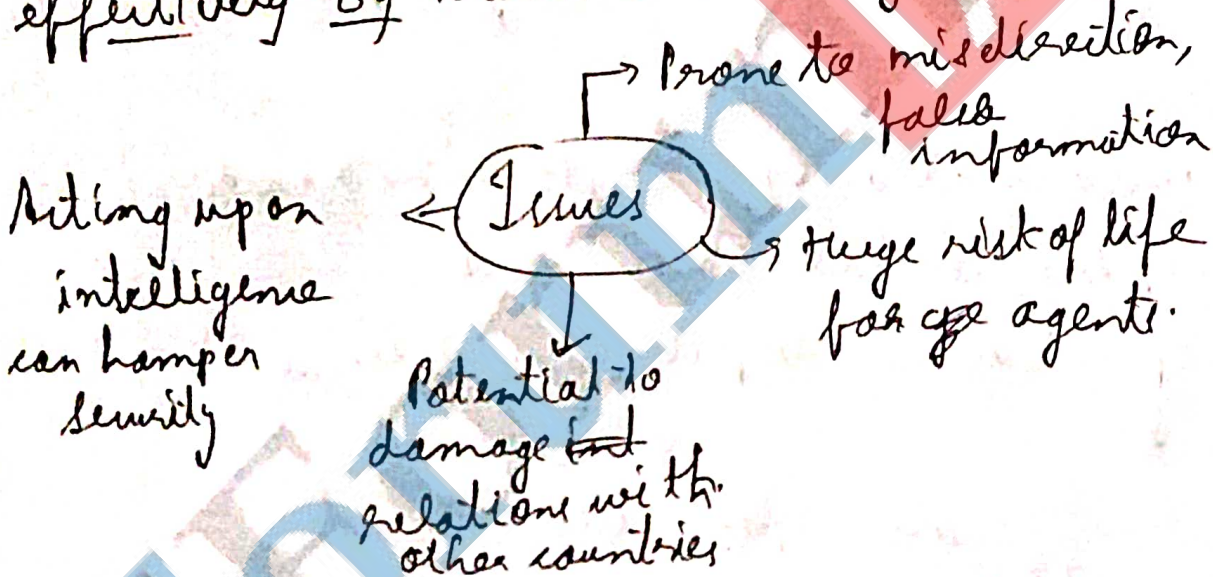 effectively by
Prone to misdirection,
false
information
Issues
Acting upon
intelligence
can hamper
security
Huge risk of life
for agents.
Potential to
damage
relations with
other countries